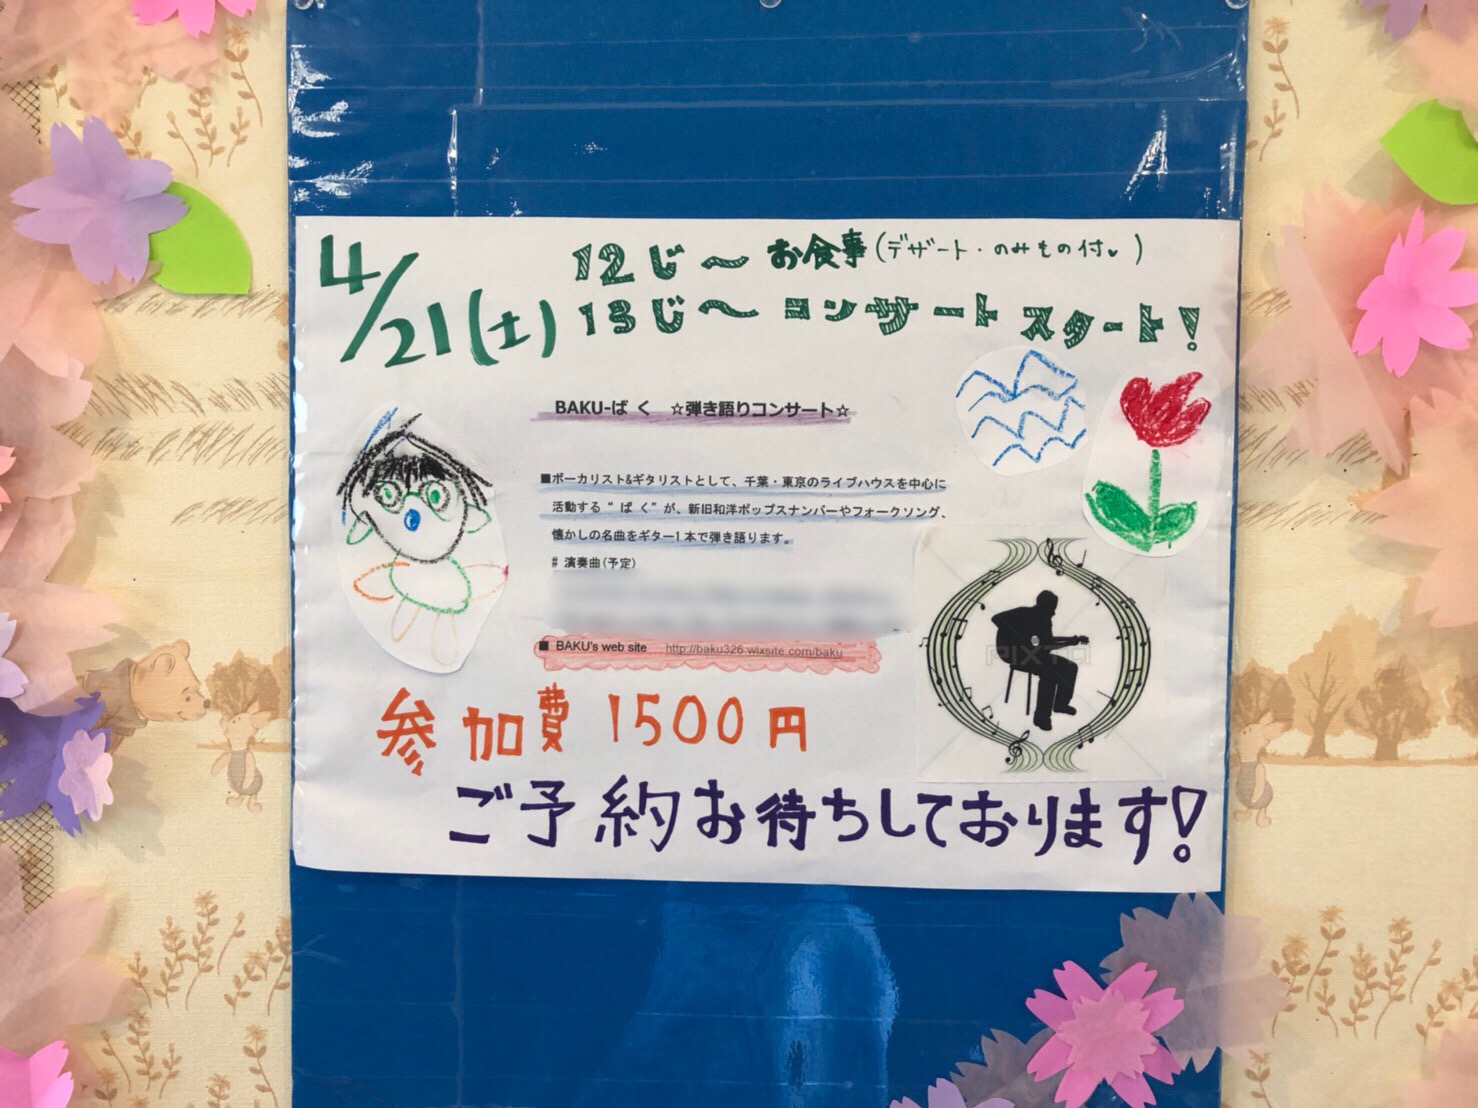 4/21(土)
12じ～ お食事(デザート・のみもの付♥)
13じ～ コンサートスタート!
BAKU-ば く ☆弾き語りコンサート☆
■ボーカリスト&ギタリストとして、千葉・東京のライブハウスを中心に
活動する“ ば く”が、新旧和洋ポップスナンバーやフォークソング、
懐かしの名曲をギター1本で弾き語ります。
# 演奏曲(予定)
■ BAKU's web site http://baku326.wixsite.com/baku
PIXTA
参加費 1500円
ご予約お待ちしております!